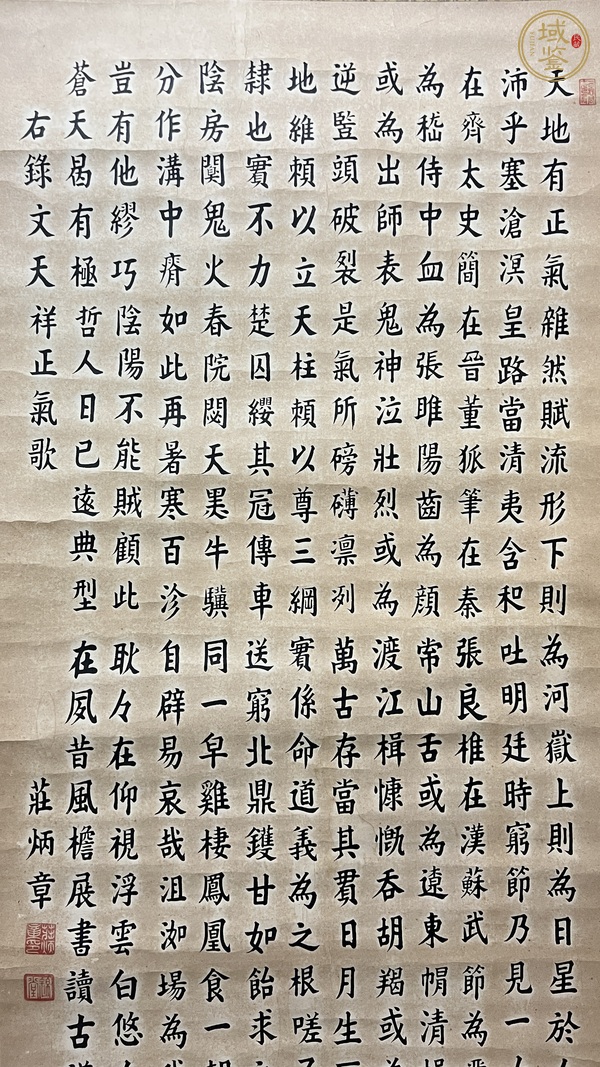 天地有正氣雜然賦流形下則為河嶽上則為日星於
沛乎塞滄溟皇路當清夷含和吐明廷時窮節乃見一
在齊太史簡在晉董狐筆在秦張良椎在漢蘇武節為
為嵇侍中血為張睢陽齒為顏常山舌或為遼東帽清
或為出師表鬼神泣壯烈或為渡江楫慷慨吞胡羯或
逆豎頭破裂是氣所磅礴凛冽萬古存當其貫日月生
地維賴以立天柱賴以尊三綱實係命道義為之根嗟
隸也實不力楚囚纓其冠傳車送窮北鼎鑊甘如飴求
陰房闃鬼火春院閟天黑牛驥同一皁雞棲鳳凰食一
分作溝中瘠如此再暑寒百沴自辟易哀哉沮洳場為
豈有他繆巧陰陽不能賊顧此耿々在仰視浮雲白悠
蒼天曷有極哲人日已遠典型在夙昔風檐展書讀古
右錄文天祥正氣歌
莊炳章
域鑒